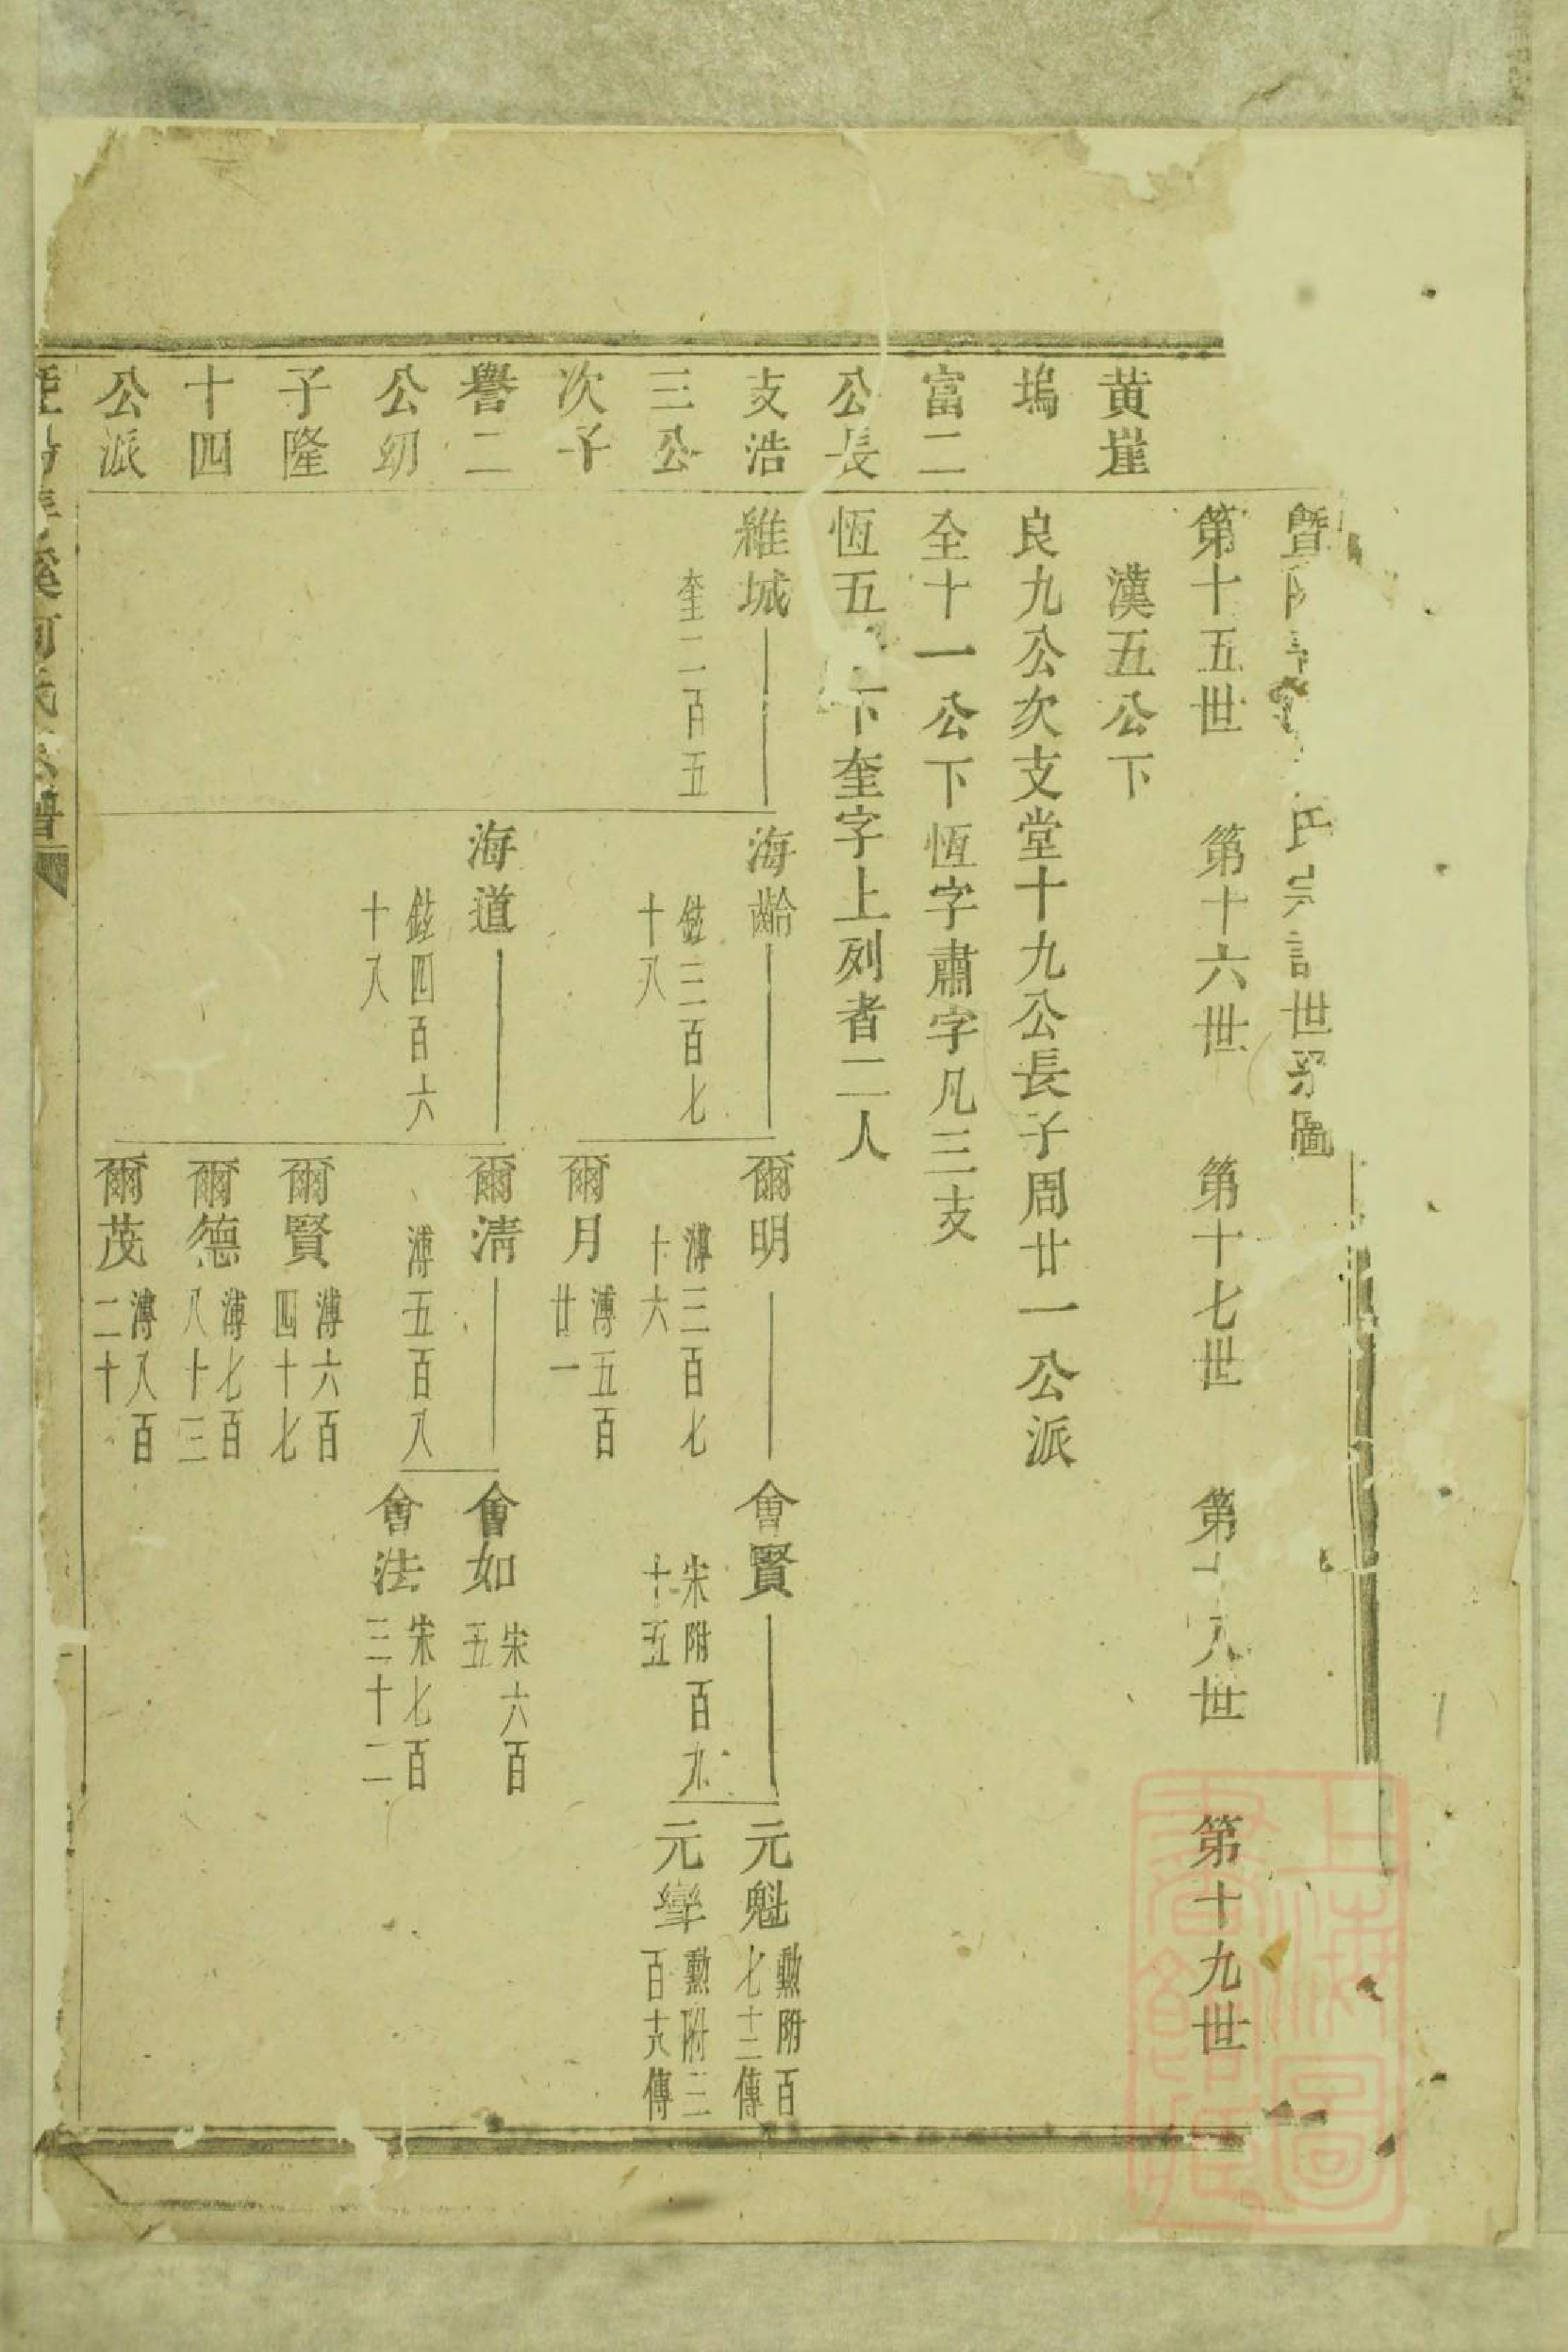 暨 氏宗譜世系圖
第十五世 第十六世 第十七世 第十八世 第十九世
黄崖
漢五公下
塢
良九公次支堂十九公長子周廿一公派
富二
全十一公下恆字肅字凡三支
公長
恆五 下奎字上列者二人
支浩
雅城 海齡 爾明 會賢 元魁 勲附百七十二傳
三公
奎二百五 鉉三百七十八 溥三百七十六 宋附百九十五 元犖 勲附三百十八傳
次子
爾月 溥五百廿一
譽二
海道 爾淸 會如 宋六百五
公朂
鉉四百六十八 溥五百八 會法 宋七百三十二
子隆
爾賢 溥六百四十七
十四
爾德 溥七百八十三
公派
爾茂 溥八百二十
溪何氏宗譜
上海圖書館藏